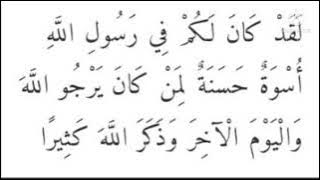 لَقَدْ كَانَ لَكُمْ فِي رَسُولِ اللَّهِ
أُسْوَةٌ حَسَنَةٌ لِمَنْ كَانَ يَرْجُو اللَّهَ
وَالْيَوْمَ الْآخِرَ وَذَكَرَ اللَّهَ كَثِيرًا